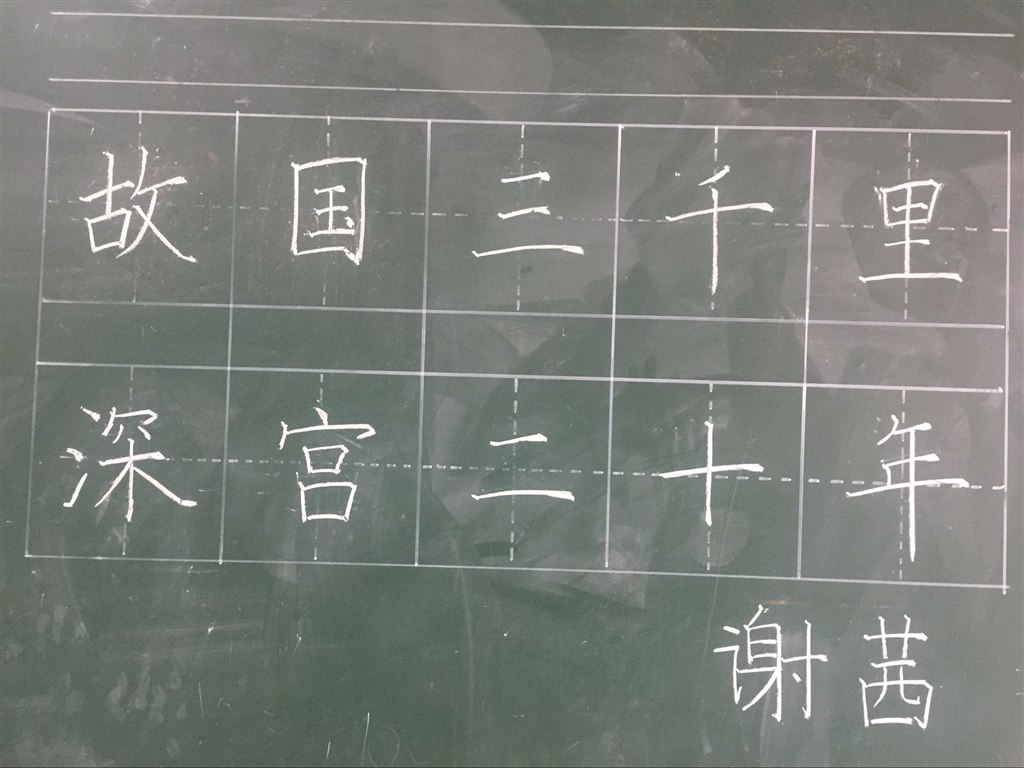 故国三千里
深宫二十年
谢茜